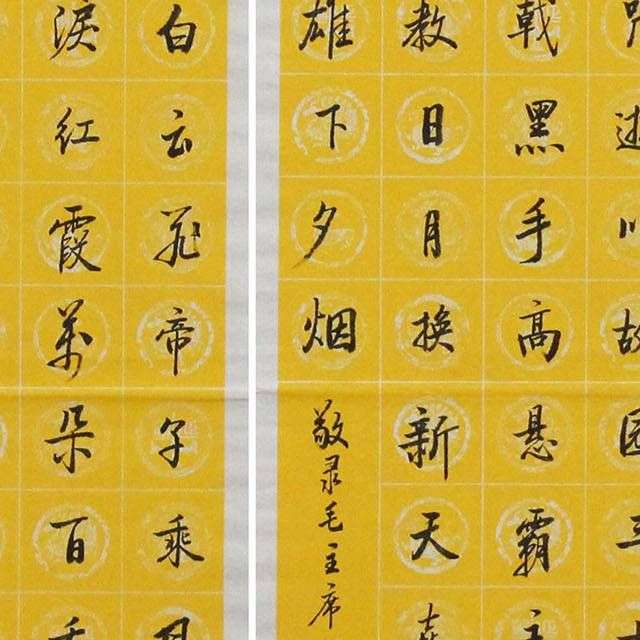 戟黑手高悬霸主
教日月换新天喜
雄下夕烟
敬录毛主席
白云飛帝子乘風
淚紅霞萬朵百重